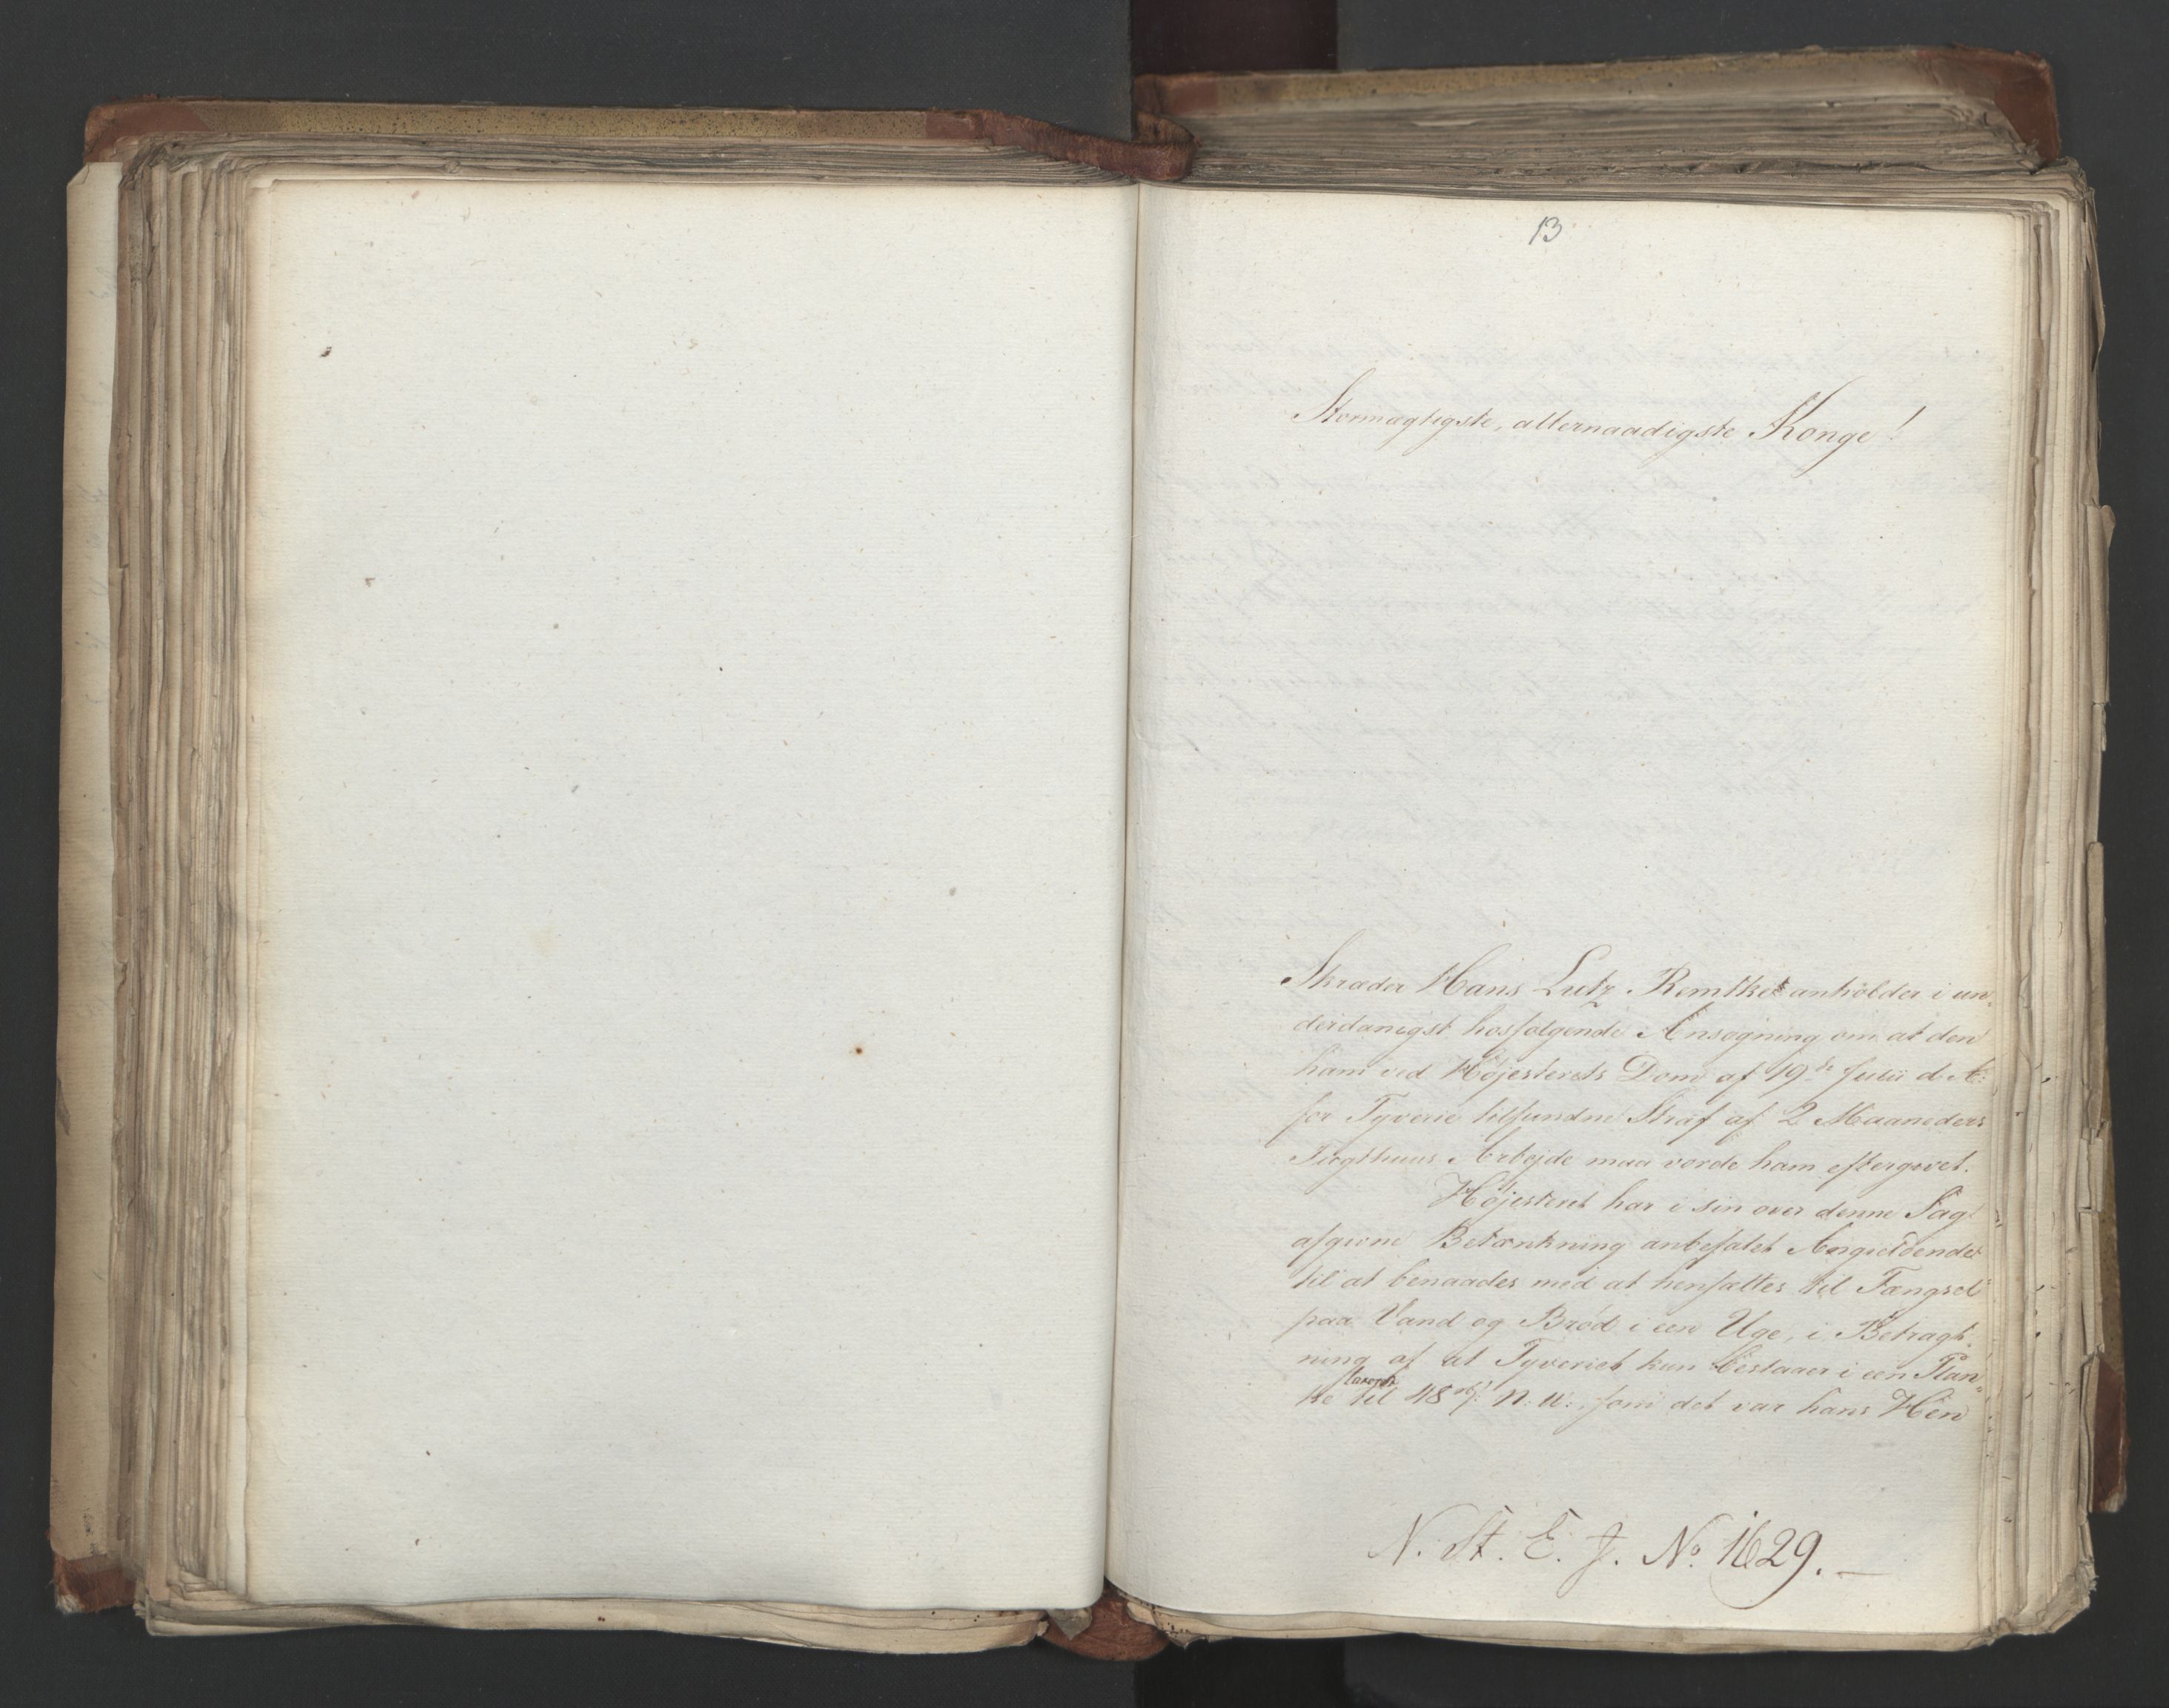 13
Stormægtigste, allernaadigste Konge!
Skræder Hans Lutz Remtke anholder i un-
derdanigst hosfølgende Ansøgning om at den
ham ved Højesterets Dom af 19de Julii d. A:
for Tyverie tilfundne Straf af 2 Maaneders
Tugthuus Arbejde maa vorde ham eftergivet.
Højesteret har i sin over denne Sag
afgivne Betænkning anbefalet Angieldende
til at benaades med at hensættes til Fængsel
paa Vand og Brød i een Uge, i Betragt-
ning af at Tyveriet kun bestaaer i een Plan-
ke taxeret til 48 s/ N. V. som det var hans Hen
N. St. E. J. No. 1629.